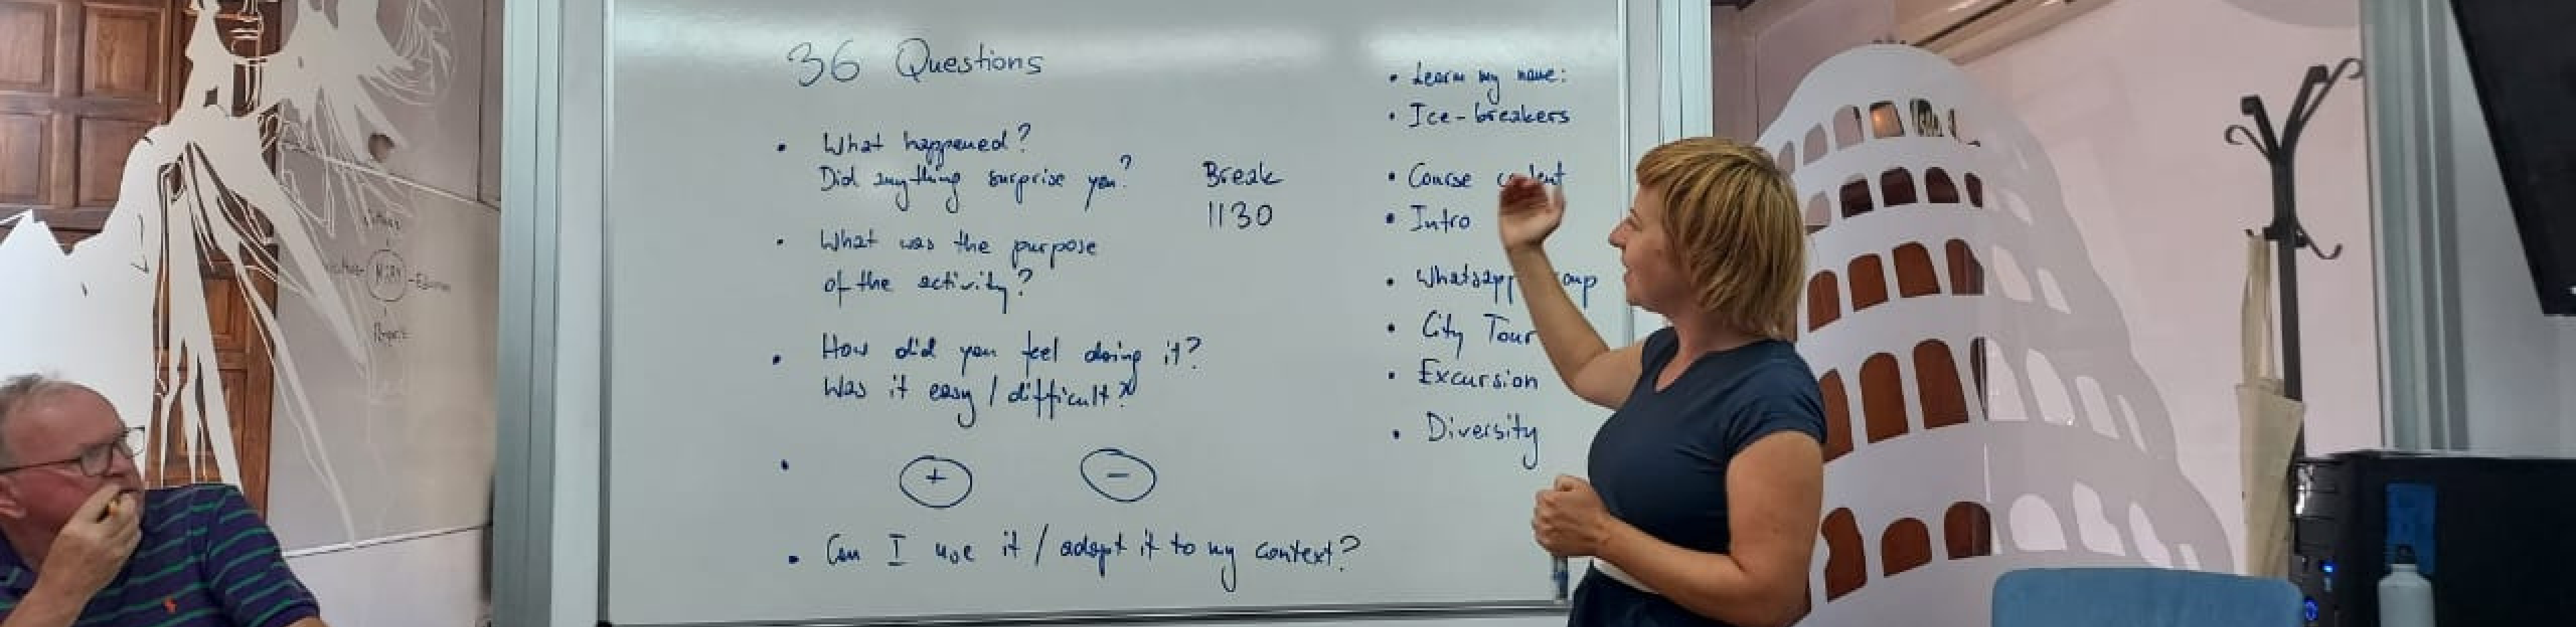 36 Questions
• What happened?
Did anything surprise you?
• What was the purpose
of the activity?
• How did you feel doing it?
Was it easy / difficult?
•
+ −
• Can I use it / adapt it to my context?
Break
1130
• Learn my name:
• Ice-breakers
• Course
• Intro
• Whatsapp
• City Tour
• Excursion
• Diversity
MARY